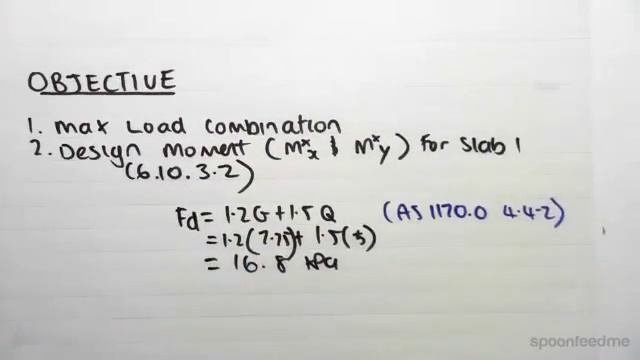 OBJECTIVE
1. Max Load Combination
2. Design Moment (M*x & M*y) for Slab 1
(6.10.3.2)
Fd = 1.2G + 1.5Q (AS 1170.0 4.4.2)
= 1.2(7.75) + 1.5(5)
= 16.8 kPa
spoonfeedme